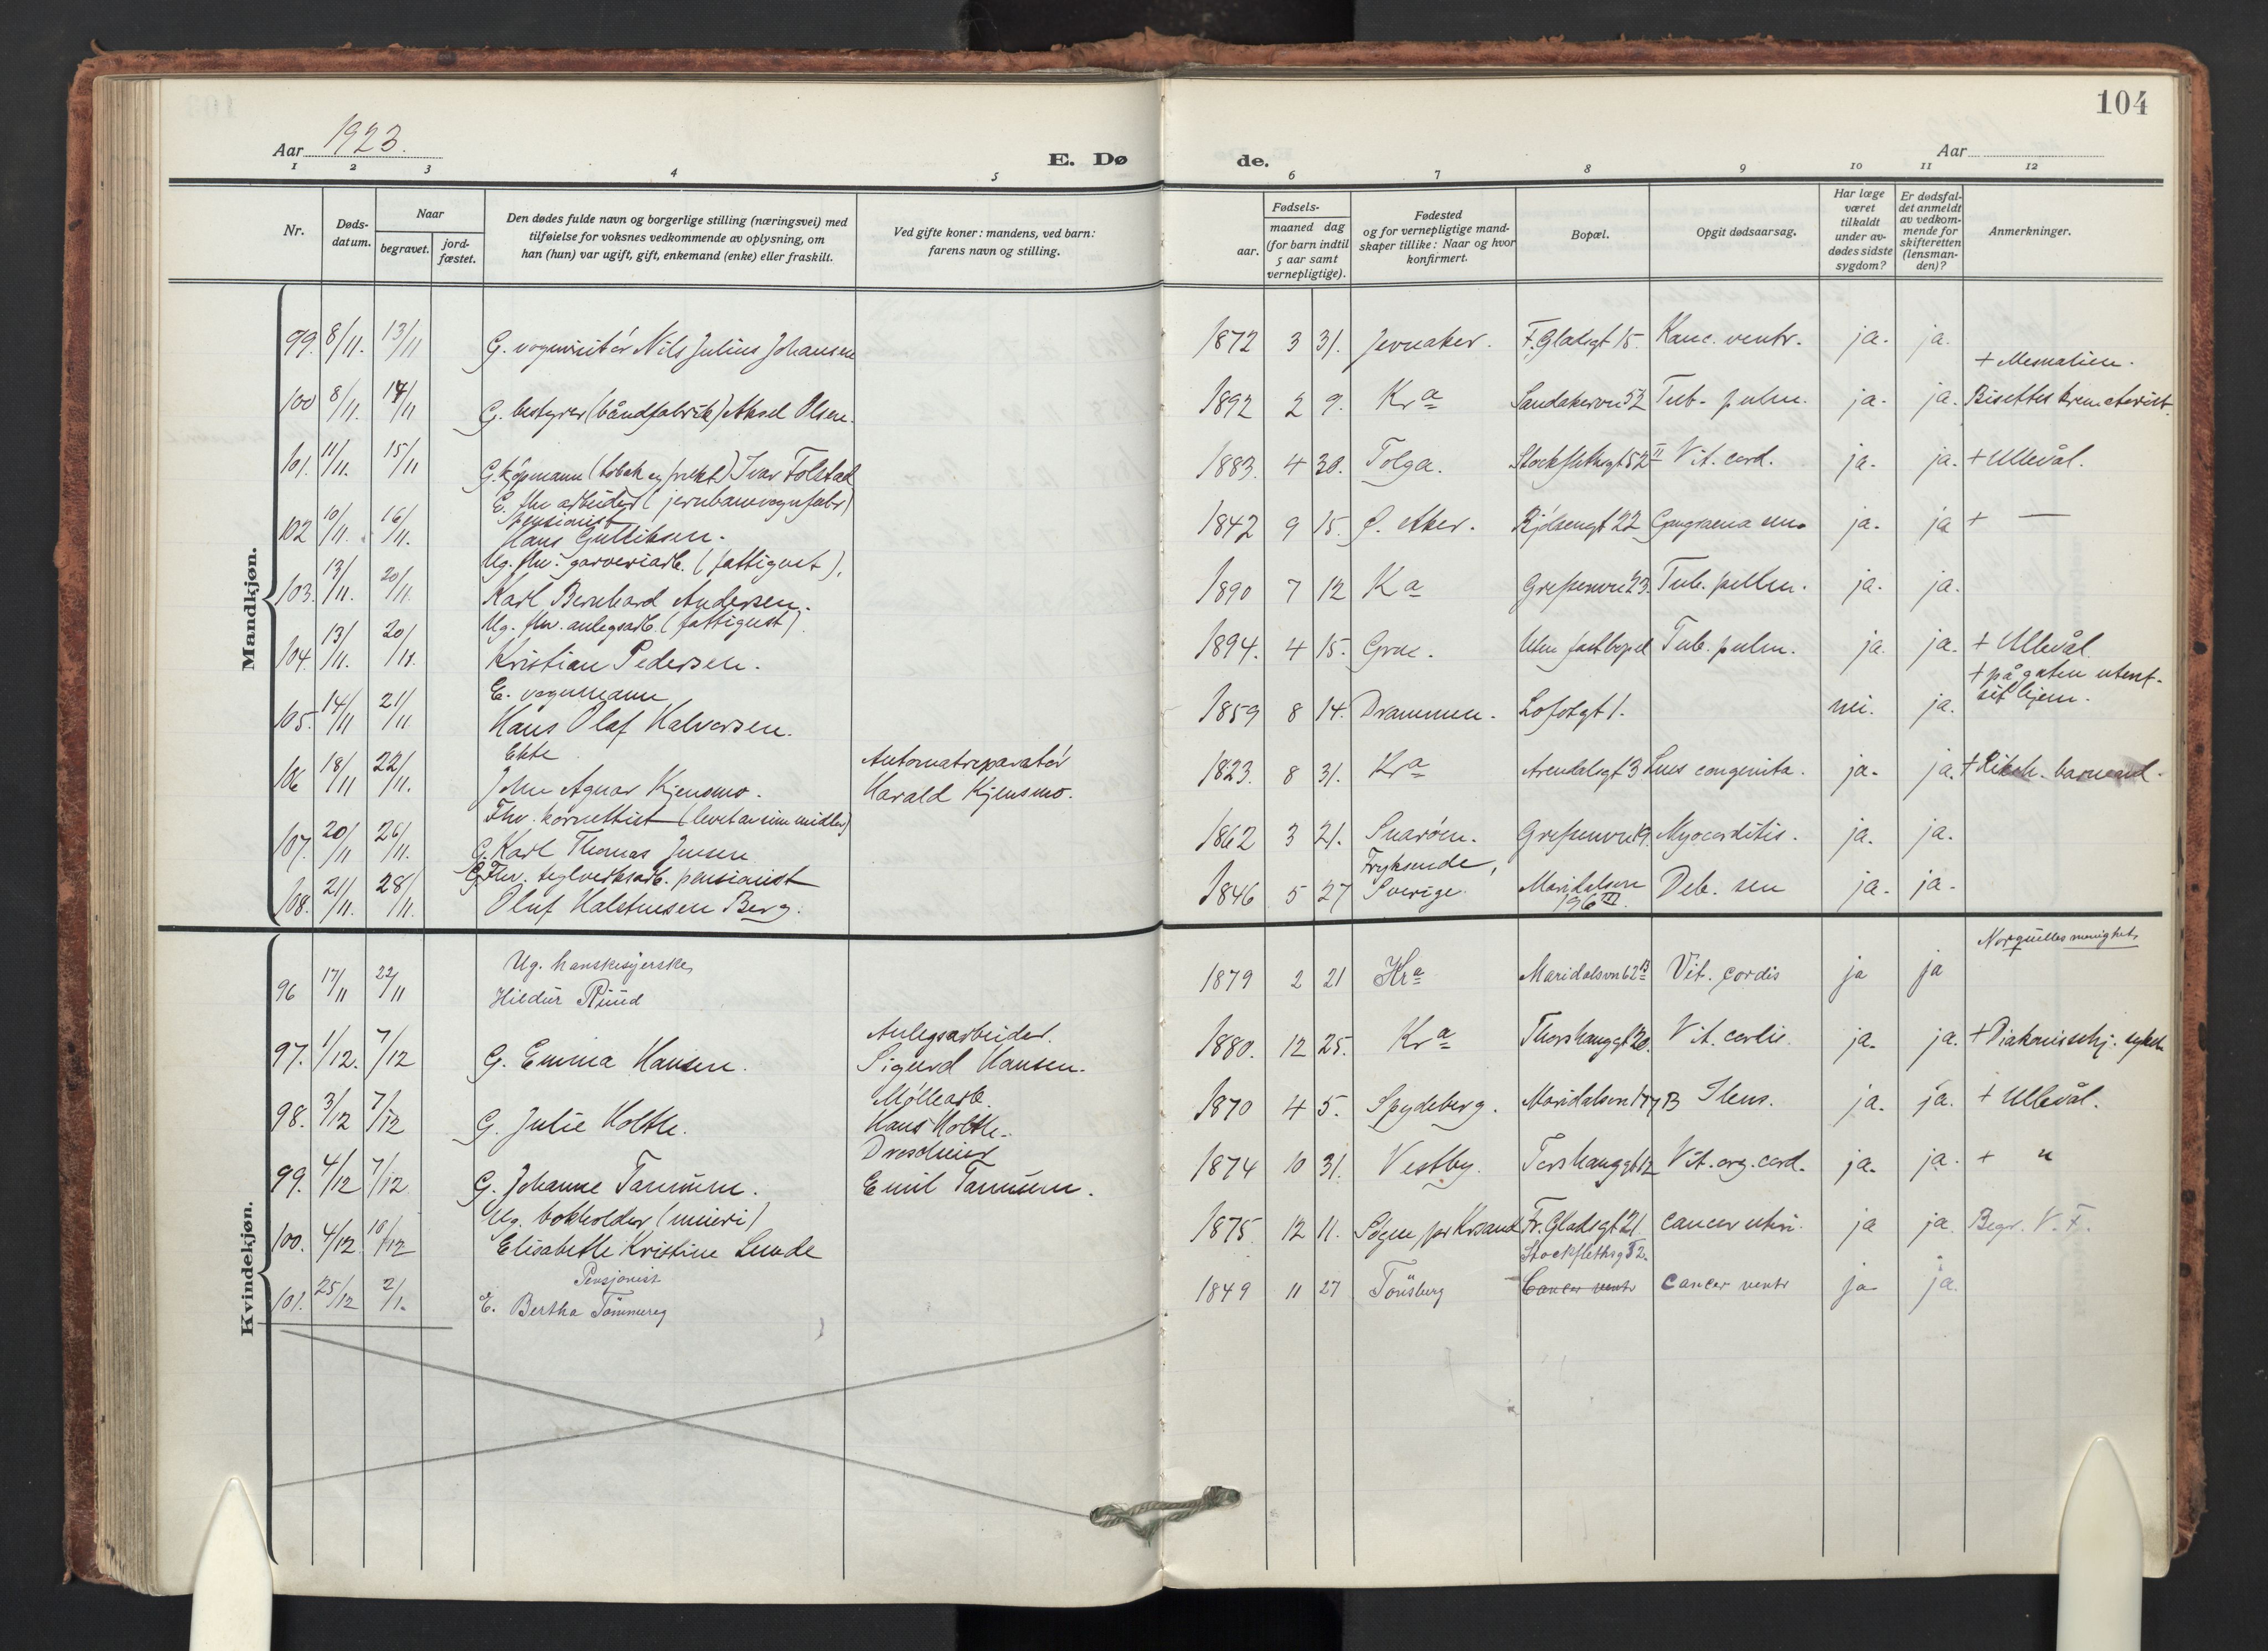 104
Aar 1923.
E. Dø de.
Aar
1 2 3 4 5 6 7 8 9 10 11 12
Nr.
Døds-datum.
Naar
begravet.
jord-fæstet.
Den dødes fulde navn og borgerlige stilling (næringsvei) med
tilføielse for voksnes vedkommende av oplysning, om
han (hun) var ugift, gift, enkemand (enke) eller fraskilt.
Ved gifte koner: mandens, ved barn:
farens navn og stilling.
Fødsels-
aar.
maaned dag
(for barn indtil
5 aar samt
vernepligtige).
Fødested
og for vernepligtige mand-
skaper tillike: Naar og hvor
konfirmert.
Bopæl.
Opgit dødsaarsag.
Har læge
været
tilkaldt
under av-
dødes sidste
sygdom?
Er dødsfal-
det anmeldt
av vedkom-
mende for
skifteretten
(lensman-
den)?
Anmerkninger.
Mandkjøn.
99. 8/11. 13/11 G. vognvisitør Nils Julius Johansen 1872 3 31. Jevnaker. F. Gladsgt 15. Kanc. ventr. ja. ja.
+ Mesnalien.
100 8/11. 14/11 G. bestyrer (båndfabrik) Aksel Olsen. 1892 2 9. Kra Sandakervn 52 Tub. pulm. ja. ja. Bisettes krematoriet.
101. 11/11. 15/11 G. kjøpmann (tobak og frukt) Ivar Tolstad 1883. 4 30. Tolga. Stockflethsgt 52 II Vit. cord. ja. ja. + Ullevål.
E. fhv arbeider (jernbanevognfabr)
pensionist
102 10/11. 16/11. Hans Gulliksen. 1842 9 15. Ø. Aker. Kjølsengt 22 Gangraena sen. ja. ja + —
Ug. fhv. garveriarb. (fattigunt),
103. 13/11. 20/11. Karl Bernhard Andersen. 1890 7 12 Ka Grefsenvn 23. Tub. pulm. ja. ja.
Ug. fhv. anlegsarb. (fattigunt)
104. 13/11. 20/11. Kristian Pedersen. 1894. 4 15. Grue. Uten fast bopel Tub. pulm. ja. ja. + Ullevål.
E. vognmann + på gaten utenf.
105. 14/11 21/11 Hans Olaf Halvorsen. 1859 8 14. Drammen. Lofotgt 1. nei. ja. sit hjem.
Ekte Automatreparatør
106 18/11 22/11. John Agnar Kjensmo. Harald Kjensmo. 1823. 8 31. Kra Arendalsgt 3 Lues congenita. ja. ja. + Riksh. barneavd.
Fhv. kornettist (levet av sine midler)
107. 20/11 26/11. G. Karl Thomas Jensen 1862 3 21. Snarøen. Grefsenvn 19. Myocarditis. ja. ja.
G. Fhv. teglverksarb. pensionist Fryksende,
108. 21/11. 28/11. Oluf Halstensen Berg. 1846 5 27 Sverige. Maridalsvn 196 III. Deb. sen ja. ja.
Kvindekjøn.
Norquelles menighet
Ug. hanskesyerske,
96 17/11 22/11 Hildur Ruud 1879 2 21 Kra Maridalsvn 62 B Vit. cordis ja ja
Anlegsarbeider.
97. 1/12. 7/12 G. Emma Hansen. Sigurd Hansen. 1880. 12 25. Kra Thorshauggt 20. Vit. cordis. ja. ja. + Diakonissehj. sykeh
Møllearb.
98. 3/12 7/12 G. Julie Holthe. Hans Holthe. 1870 4 5. Spydeberg. Maridalsvn 177 B Ileus. ja. ja. + Ullevål.
99. 4/12 7/12 G. Johanne Tanum. Emil Tanum. 1874 10 31. Vestby. Torshauggt 12 Vit. org. cord. ja. ja. + "
Ug. bokholder (meieri)
100. 4/12. 10/12 Elisabeth Kristine Lunde 1875. 12 11. Søgne pr Krsand Fr. Gladsgt 21. Cancer uteri. ja ja. Begr. V. F.
Pensjonist Stockflethsgt 52.
101. 25/12 2/1. E. Bertha Tømmereg 1849 11 27 Tønsberg Cancer ventr Cancer ventr ja ja.